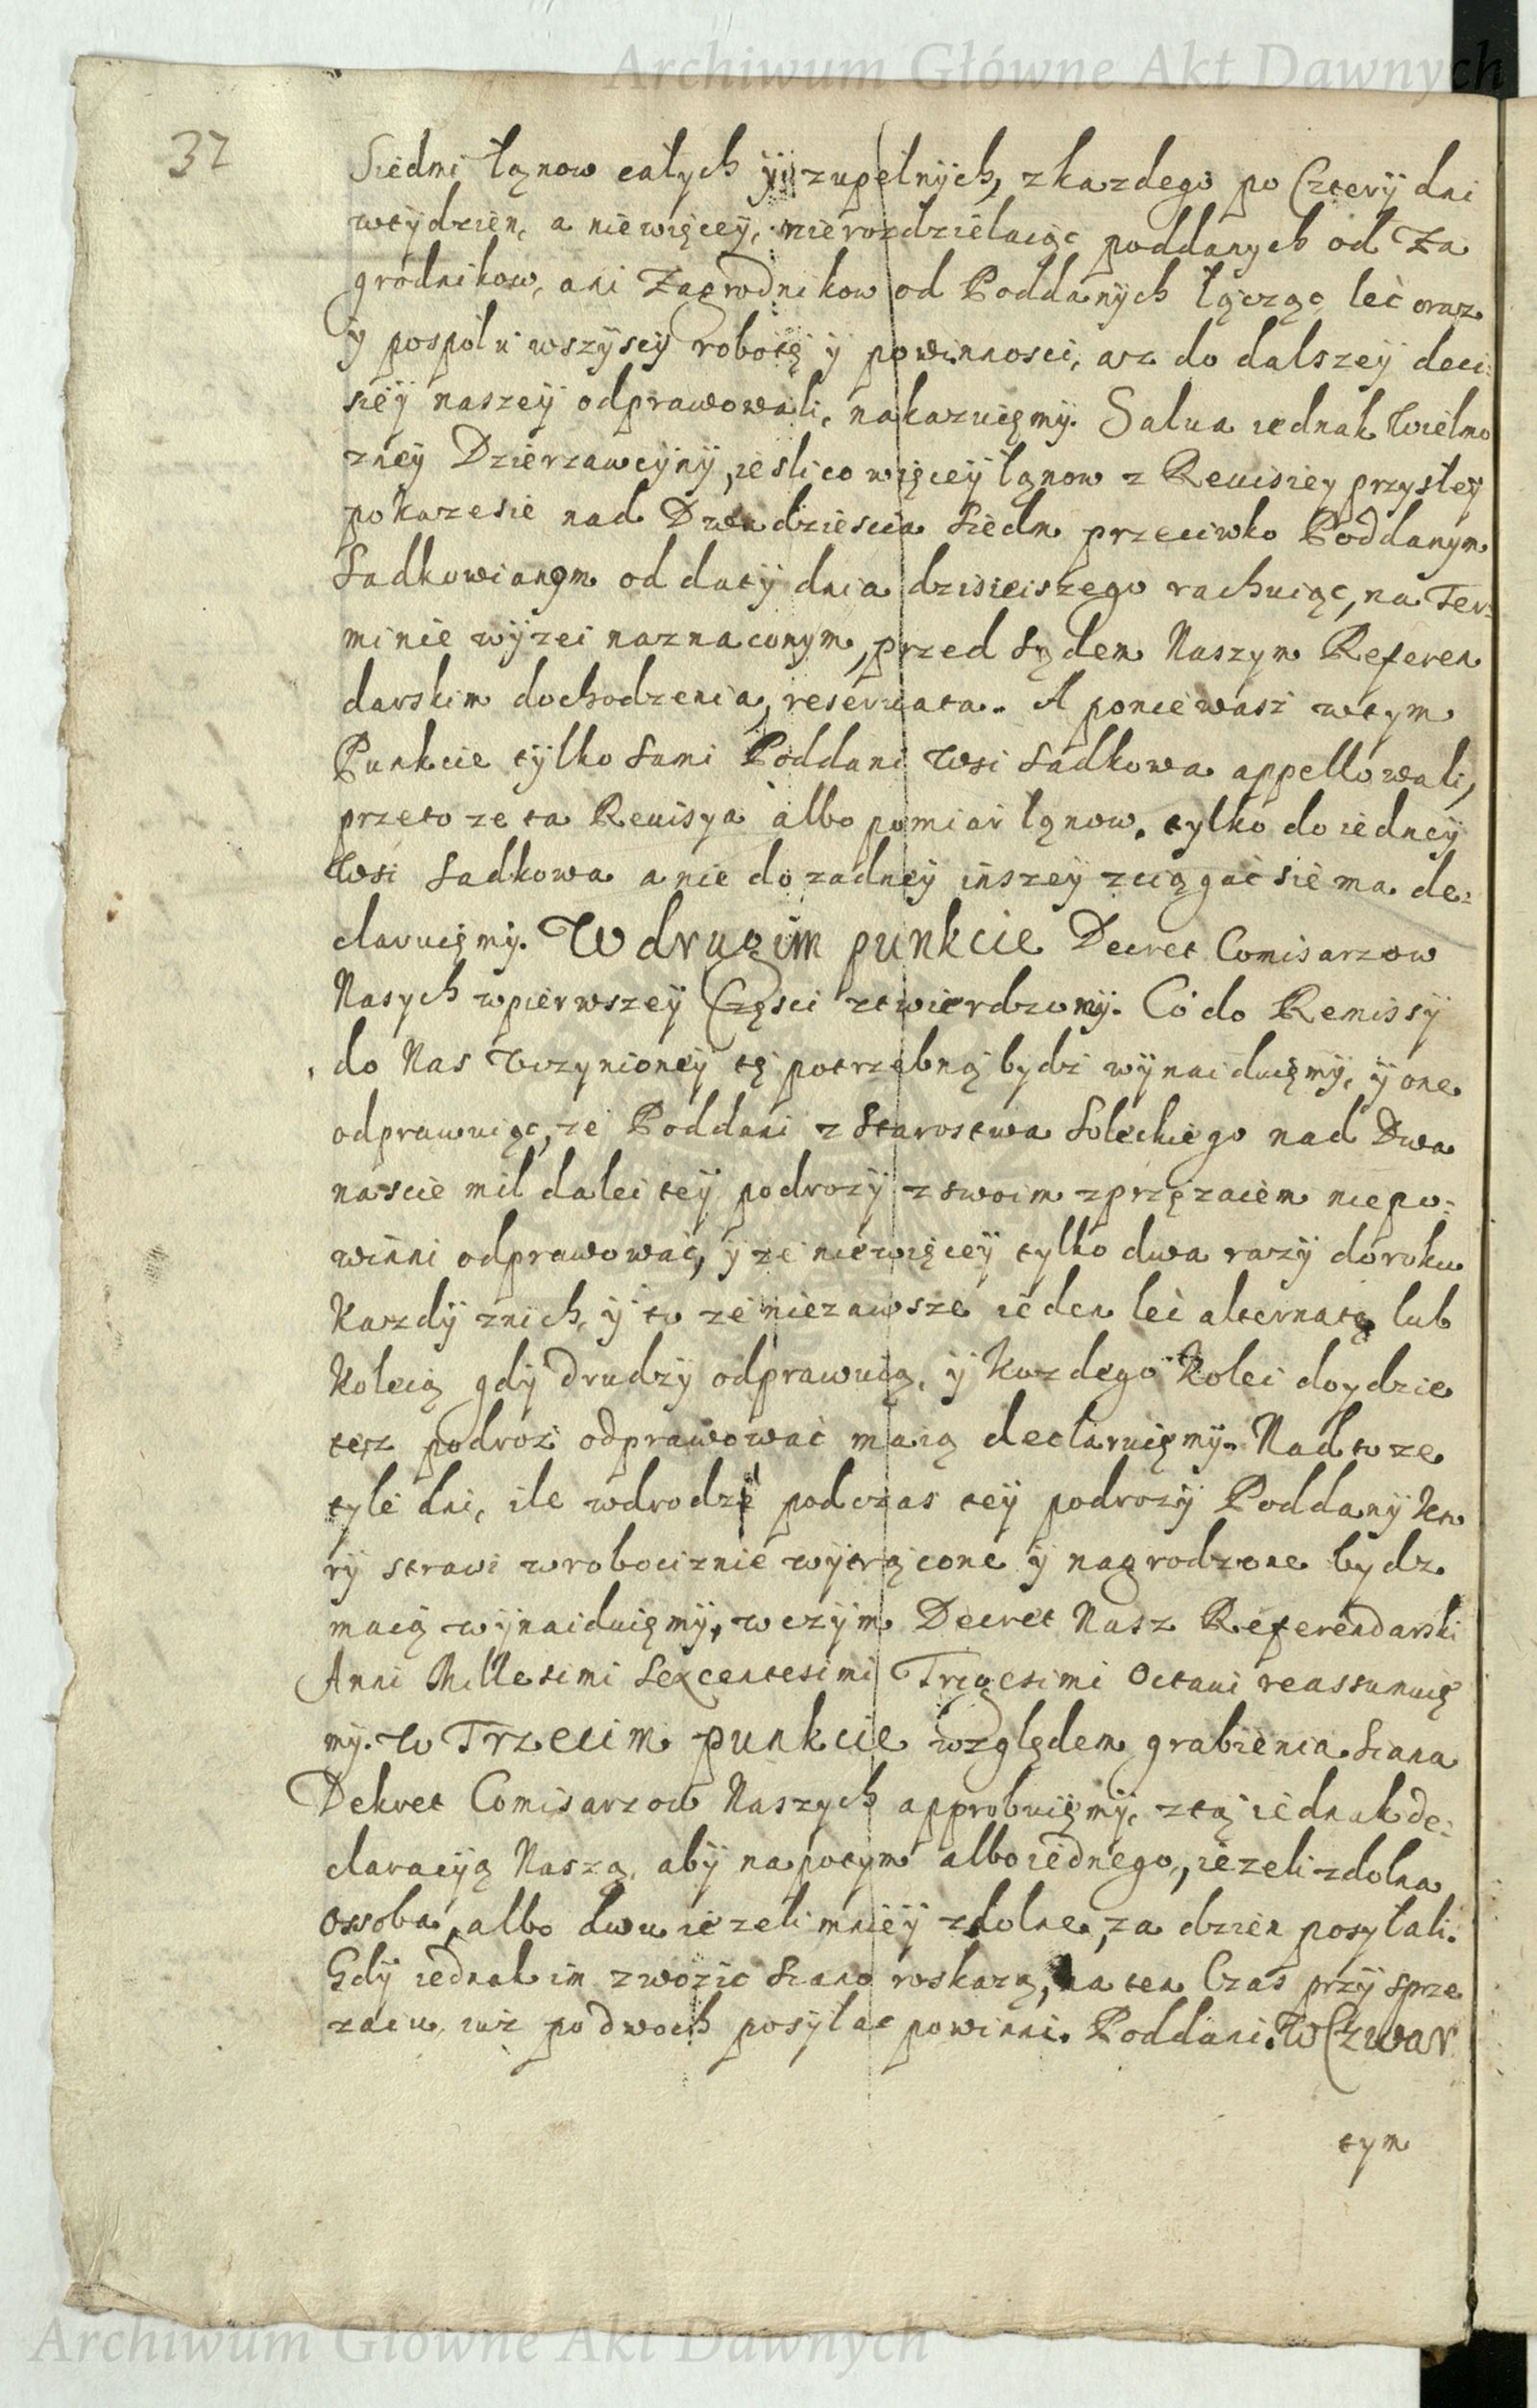 Archiwum Główne Akt Dawnych
32
Siedmi łąnow całych ÿ zupełnÿch, zkazdego po Czterÿ dni
wtÿdzien, a niewięceÿ, nierozdzielaiąc poddanych od Za
grodnikow, ani Zagrodnikow od Poddanÿch łącząc leć oraz
ÿ pospołu wszÿscÿ robotę ÿ powinnosci, asz do dalszeÿ deci:
sieÿ naszeÿ odprawowali, nakazuięmÿ. Salua iednak Wielmo
zneÿ Dzierzawcÿnÿ, iesli co więceÿ łąnow z Reuisiey przyszłeÿ
pokazesie nad Dwadziescia Siedm przeciwko Poddanym
Sadkowianom od datÿ dnia dzisieiszego rachuiąc, na Ter:
minie wÿzei naznaconym, przed Sądem Naszym Referen
darskim dochodzenia, reseruata. A poniewasz wtym
Punkcie tÿlko Sami Poddani Wsi Sadkowa appellowali,
przeto ze ta Reuisya albo pomiar łąnow, tylko do iedneÿ
Wsi Sadkowa a nie do zadneÿ inszeÿ zciągać sie ma de:
claruięmÿ. W drugim punkcie Decret Comisarzow
Nasych wpierwszeÿ Częsci ztwierdzomÿ. Co do Remissÿ
do Nas Uczynioneÿ tę potrzebną bydz wÿnaiduięmÿ, ÿ one
odprawuiąc, ze Poddani z Starostwa Soleckiego nad Dwa
nascie mil dalei teÿ podrozÿ z swoim zprzęzaiem niepo:
winni odprawować, ÿ ze niewięceÿ tylko dwa razÿ doroku
Kazdÿ znich, ÿ to ze niezawsze ieden leć alternatą lub
Koleią gdÿ drudzÿ odprawuią, ÿ Kazdego Kolei doydzie
tesz podroz odprawować maią declaruięmÿ. Nadto ze
tyle dni, ile wdrodze podczas teÿ podrozÿ Poddanÿ Kto
rÿ strawi wrobociznie wÿtrącone ÿ nagrodzone bydz
maią wÿnaiduięmÿ, wczÿm Decret Nasz Referendarski
Anni Millesimi Sexcentesimi Trigesimi Octaui reassumuię
mÿ. W Trzecim punkcie względem grabienia Siana
Dekret Comisarzow Naszych approbuięmÿ, ztą iednak de:
claracÿą Naszą, abÿ napotym albo iednego, iezeli zdolna
Osoba, albo dwu iezeli mnieÿ zdolne, za dzien posyłali.
Gdÿ iednak im zwozic Siano roskazą, na ten Czas przÿ sprze
zaiu iuż po dwoch posÿłac powinni Poddani. W Czwar
tym
Archiwum Główne Akt Dawnych